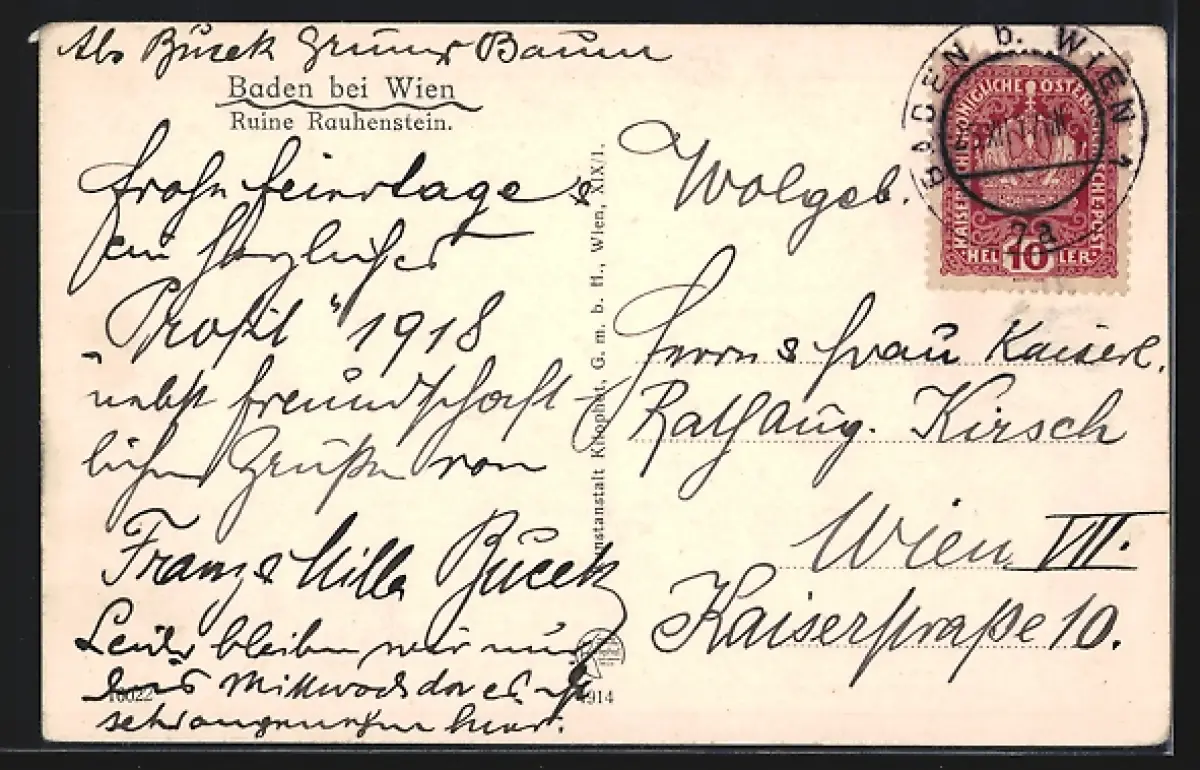 Abs Bucek Grüner Baum
Baden bei Wien
Ruine Rauhenstein.
frohe feiertage &
ein herzliches
Prosit "1918
nebst freundschaft
lichen Grüßen von
Franz & Milla Bucek
Leider bleiben wir nur
bis Mittwoch da es
sehr angenehm hier.
10022
1914
Kunstanstalt Kilophot, G. m. b. H., Wien, XIX/1.
BADEN b. WIEN 1
KAISERLICHE KÖNIGLICHE ÖSTERREICHISCHE POST
HEL 10 LER
Wolgeb.
Herrn & frau Kaiserl.
Rath Aug. Kirsch
Wien VII.
Kaiserstraße 10.